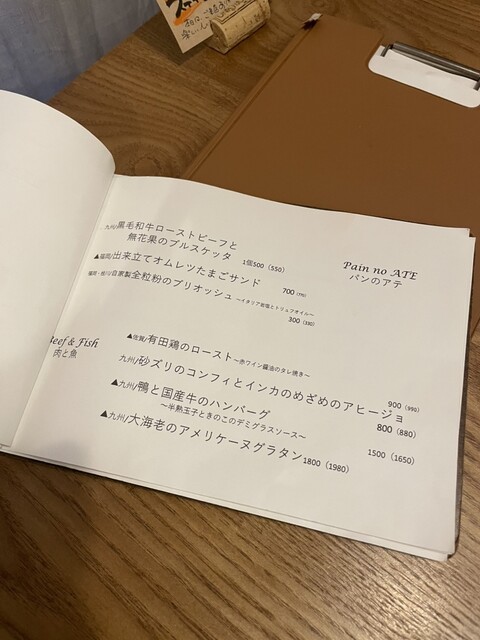 Pain no ATE
パンのアテ
九州/黒毛和牛ローストビーフと
無花果のブルスケッタ 1個500（550）
▲福岡/出来立てオムレツたまごサンド
700（770）
自家製全粒粉のブリオッシュ～イタリア岩塩とトリュフオイル～
300（330）
Beef & Fish
肉と魚
▲佐賀/有田鶏のロースト～赤ワイン醤油のタレ焼き～
900（990）
九州/砂ズリのコンフィとインカのめざめのアヒージョ
800（880）
▲九州/鴨と国産牛のハンバーグ
～半熟玉子ときのこのデミグラスソース～
1500（1650）
▲九州/大海老のアメリケーヌグラタン1800（1980）